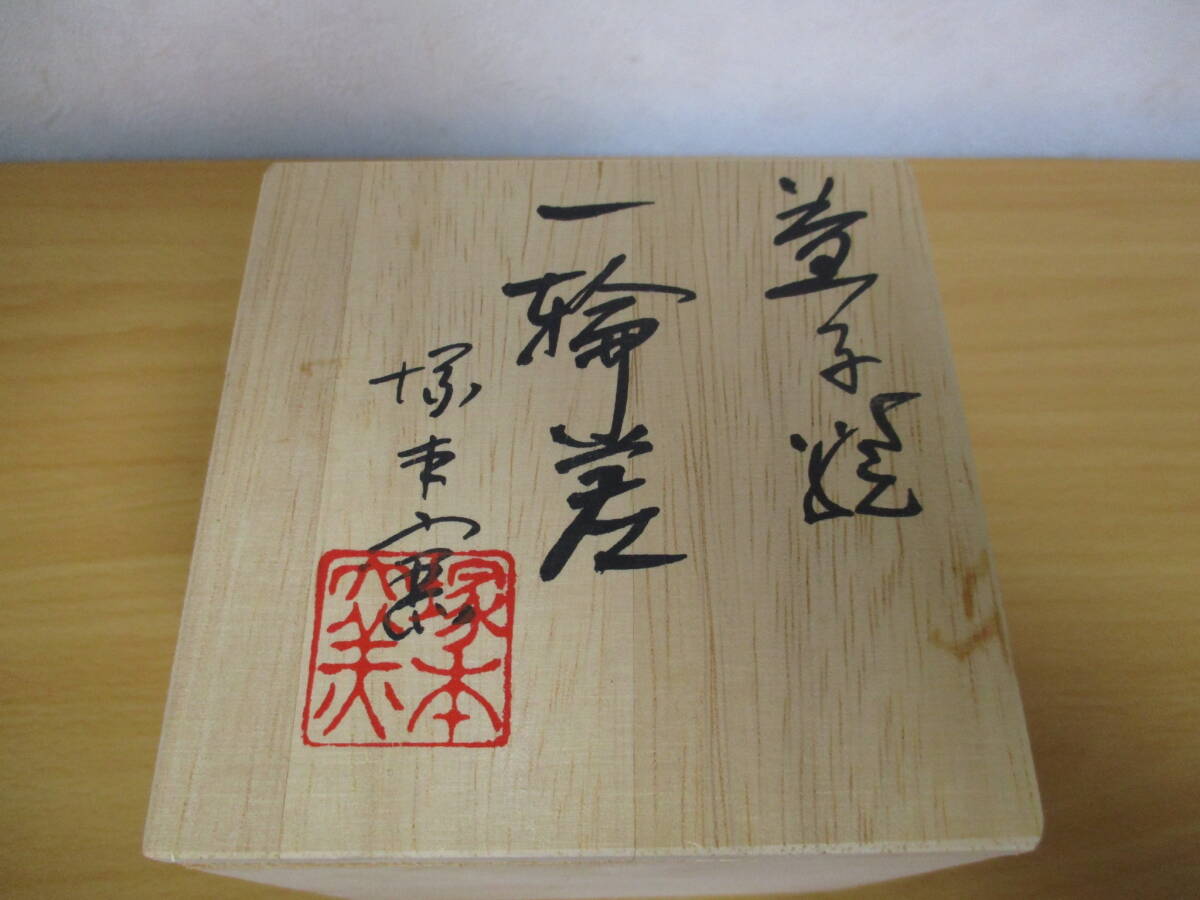 益子焼
一輪差
塚本窯
塚本
窯